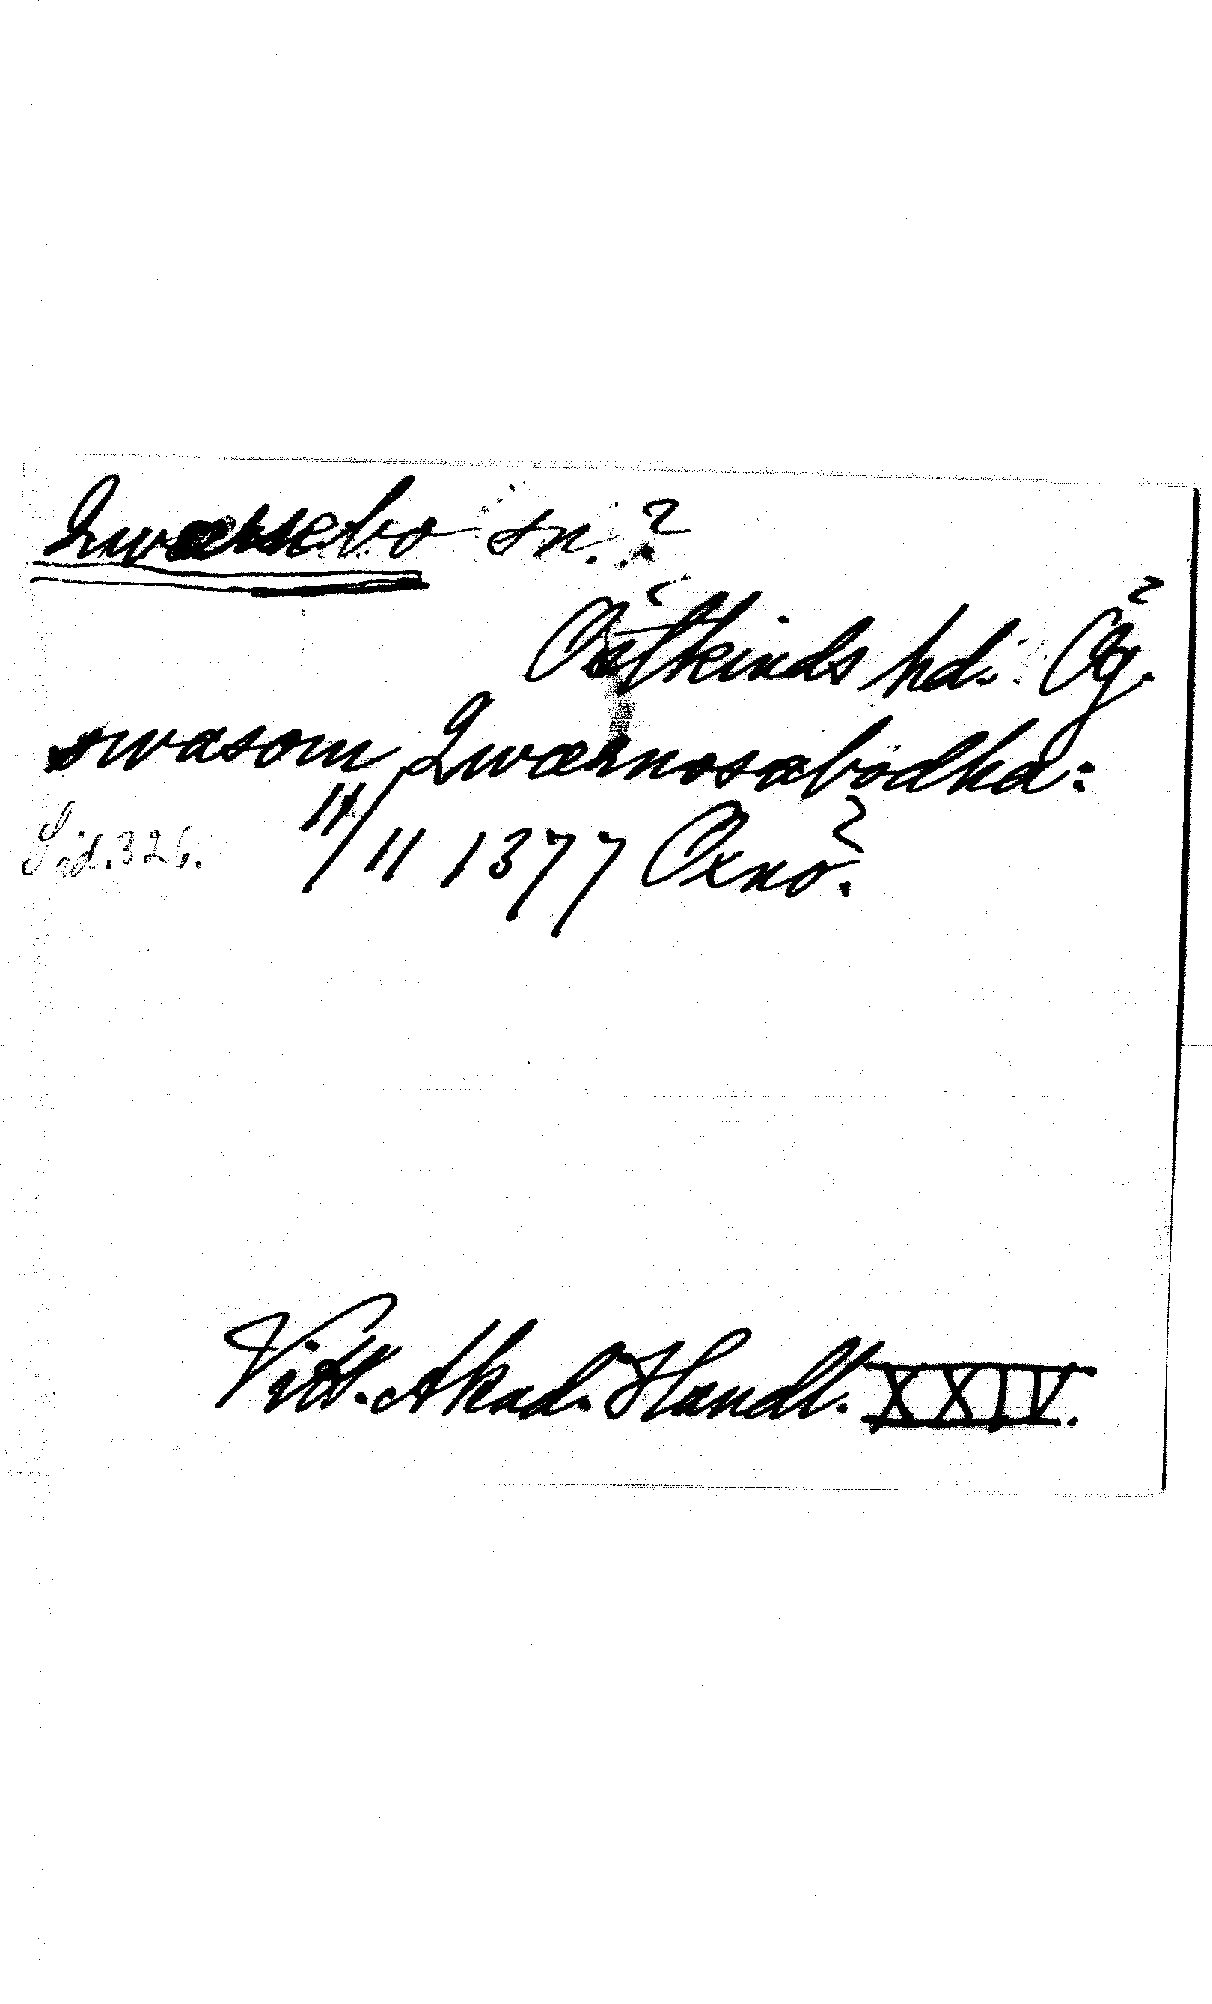 Qwarsebo sn.?
Östkinds hd. Ög.
swasom Qwærnosæbodha:
Sid. 326. 14/11 1377 Oxnö.
Vitt. Akad. Handl. XXIV.